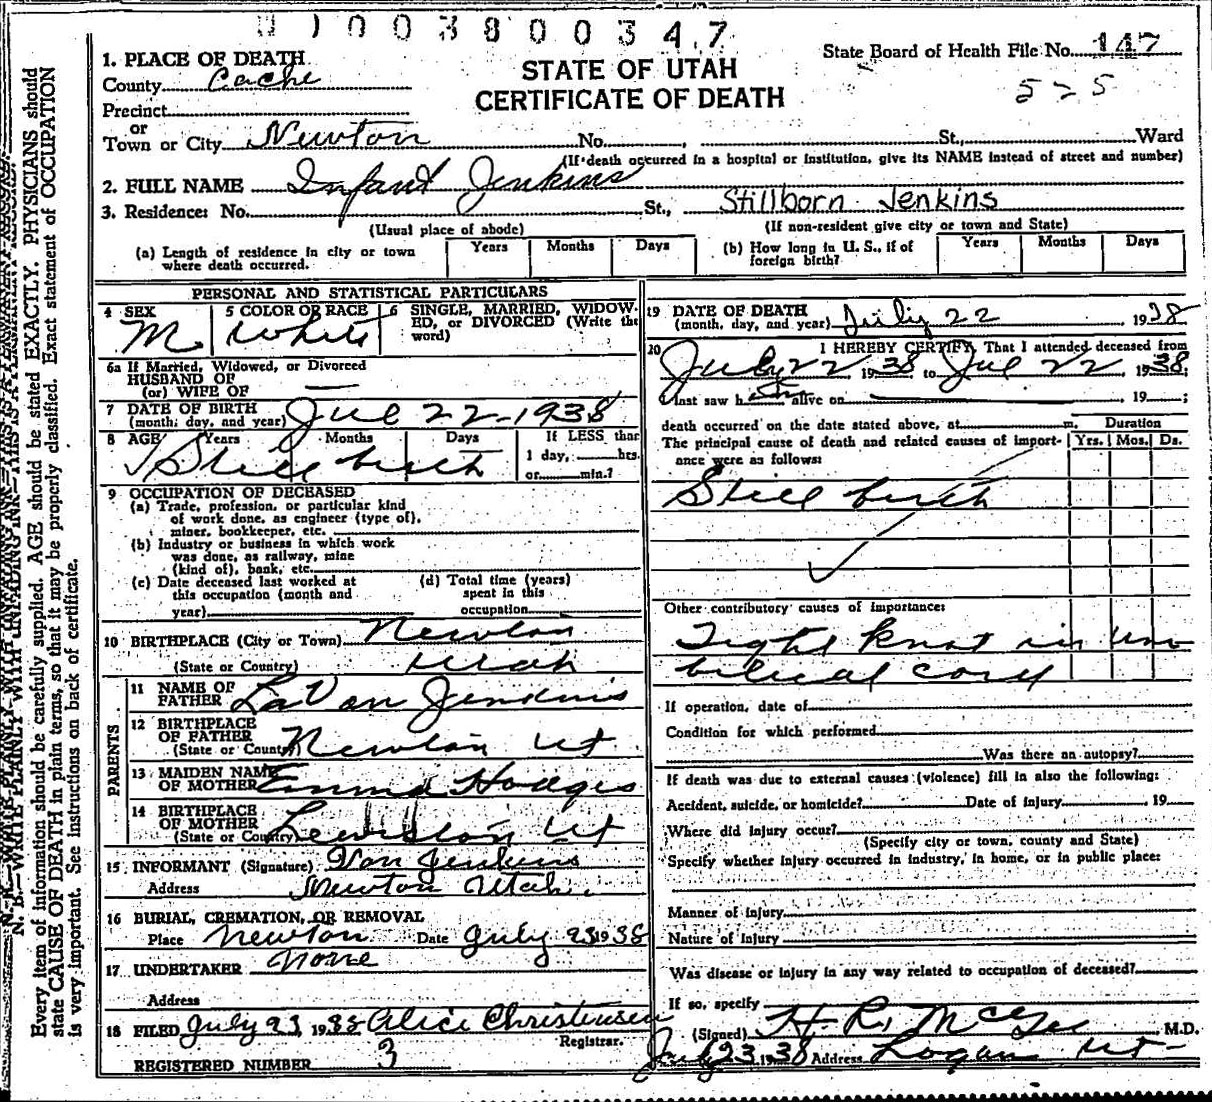 0 1 0 0 3 8 0 0 3 4 7
State Board of Health File No. 147
525
STATE OF UTAH
CERTIFICATE OF DEATH
1. PLACE OF DEATH
County Cache
Precinct
or
Town or City Newton No. , St., Ward
(If death occurred in a hospital or institution, give its NAME instead of street and number)
2. FULL NAME Infant Jenkins
3. Residence: No. St., Stillborn Jenkins
(Usual place of abode) (If non-resident give city or town and State)
(a) Length of residence in city or town where death occurred. Years Months Days
(b) How long in U. S., if of foreign birth? Years Months Days
PERSONAL AND STATISTICAL PARTICULARS
4 SEX M.
5 COLOR OR RACE White
6 SINGLE, MARRIED, WIDOWED, or DIVORCED (Write the word)
6a If Married, Widowed, or Divorced
HUSBAND OF
(or) WIFE OF —
7 DATE OF BIRTH
(month, day, and year) Jul 22-1938
8 AGE Years Months Days If LESS than
1 day, hrs.
or min.?
Still birth
9 OCCUPATION OF DECEASED
(a) Trade, profession, or particular kind
of work done, as engineer (type of),
miner, bookkeeper, etc.
(b) Industry or business in which work
was done, as railway, mine
(kind of), bank, etc.
(c) Date deceased last worked at
this occupation (month and
year)
(d) Total time (years)
spent in this
occupation
10 BIRTHPLACE (City or Town) Newton
(State or Country) Utah
PARENTS
11 NAME OF
FATHER LaVon Jenkins
12 BIRTHPLACE
OF FATHER
(State or Country) Newton Ut
13 MAIDEN NAME
OF MOTHER Emma Hodges
14 BIRTHPLACE
OF MOTHER
(State or Country) Lewiston Ut
15 INFORMANT (Signature) Von Jenkins
Address Newton Utah.
16 BURIAL, CREMATION, OR REMOVAL
Place Newton Date July 23 1938
17 UNDERTAKER None
Address
18 FILED July 23, 1938 Alice Christensen
Registrar.
REGISTERED NUMBER 3
19 DATE OF DEATH
(month, day, and year) July 22 1938
20 I HEREBY CERTIFY, That I attended deceased from
July 22 1938 to Jul 22, 1938;
I last saw h alive on , 19 ;
death occurred on the date stated above, at m.
The principal cause of death and related causes of importance were as follows:
Duration
Yrs. Mos. Ds.
Still birth
Other contributory causes of importance:
Tight knot in um
bilical cord
If operation, date of
Condition for which performed
Was there an autopsy?
If death was due to external causes (violence) fill in also the following:
Accident, suicide, or homicide? Date of injury , 19
Where did injury occur?
(Specify city or town, county and State)
Specify whether injury occurred in industry, in home, or in public place:
Manner of injury
Nature of injury
Was disease or injury in any way related to occupation of deceased?
If so, specify
(Signed) H. R. McGee M.D.
July 23 1938 Address Logan Ut-
N. B.—WRITE PLAINLY WITH UNFADING INK—THIS IS A PERMANENT RECORD.
Every item of information should be carefully supplied. AGE should be stated EXACTLY. PHYSICIANS should
state CAUSE OF DEATH in plain terms, so that it may be properly classified. Exact statement of OCCUPATION
is very important. See instructions on back of certificate.